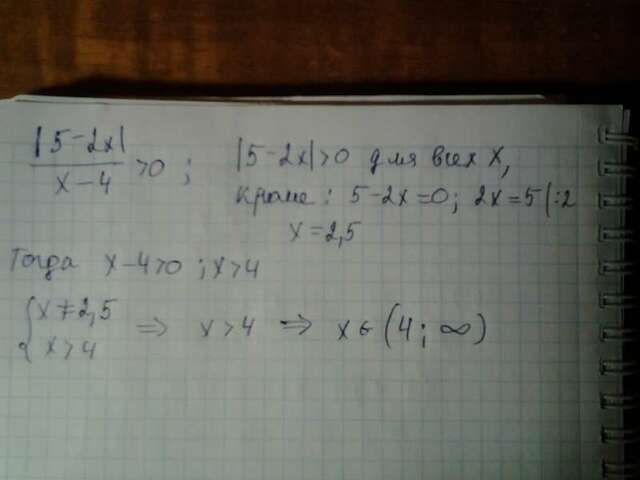 |5-2x| / x-4 >0 ; |5-2x|>0 для всех x,
кроме: 5-2x=0; 2x=5 |:2
x=2,5
Тогда x-4>0 ; x>4
{x≠2,5
x>4 ⇒ x>4 ⇒ x∈(4; ∞)